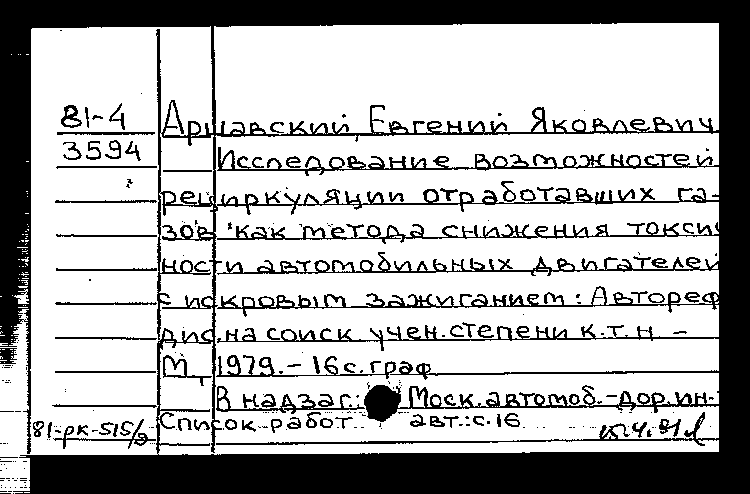 81-4
3594
Аршавский, Евгений Яковлевич
Исследование возможностей
рециркуляции отработавших га-
зов как метода снижения токси
ности автомобильных двигателей
с искровым зажиганием: Автореф
дис. на соиск учен. степени к.т.н -
М., 1979. - 16 с. граф
В надзаг.: Моск. автомоб.-дор. ин-
Список работ авт.: с. 16
81-рк-515/э